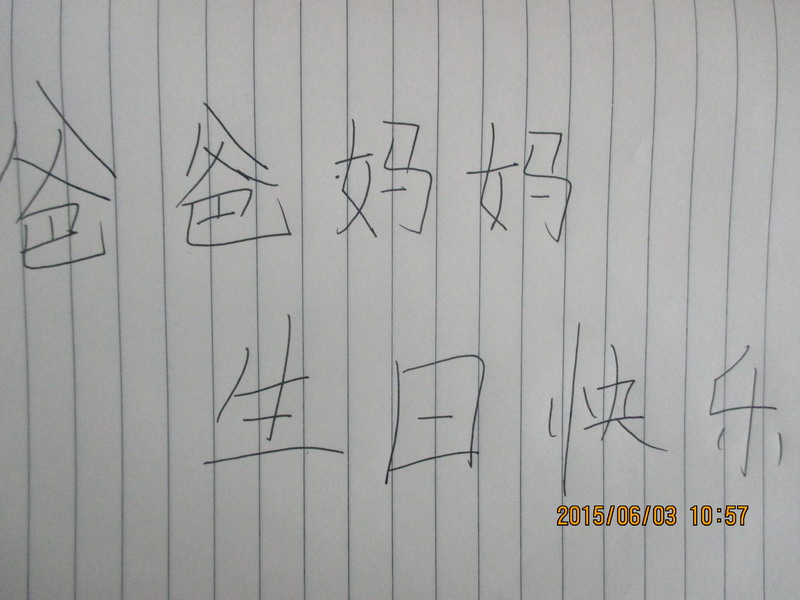 爸爸妈妈
生日快乐
2015/06/03 10:57